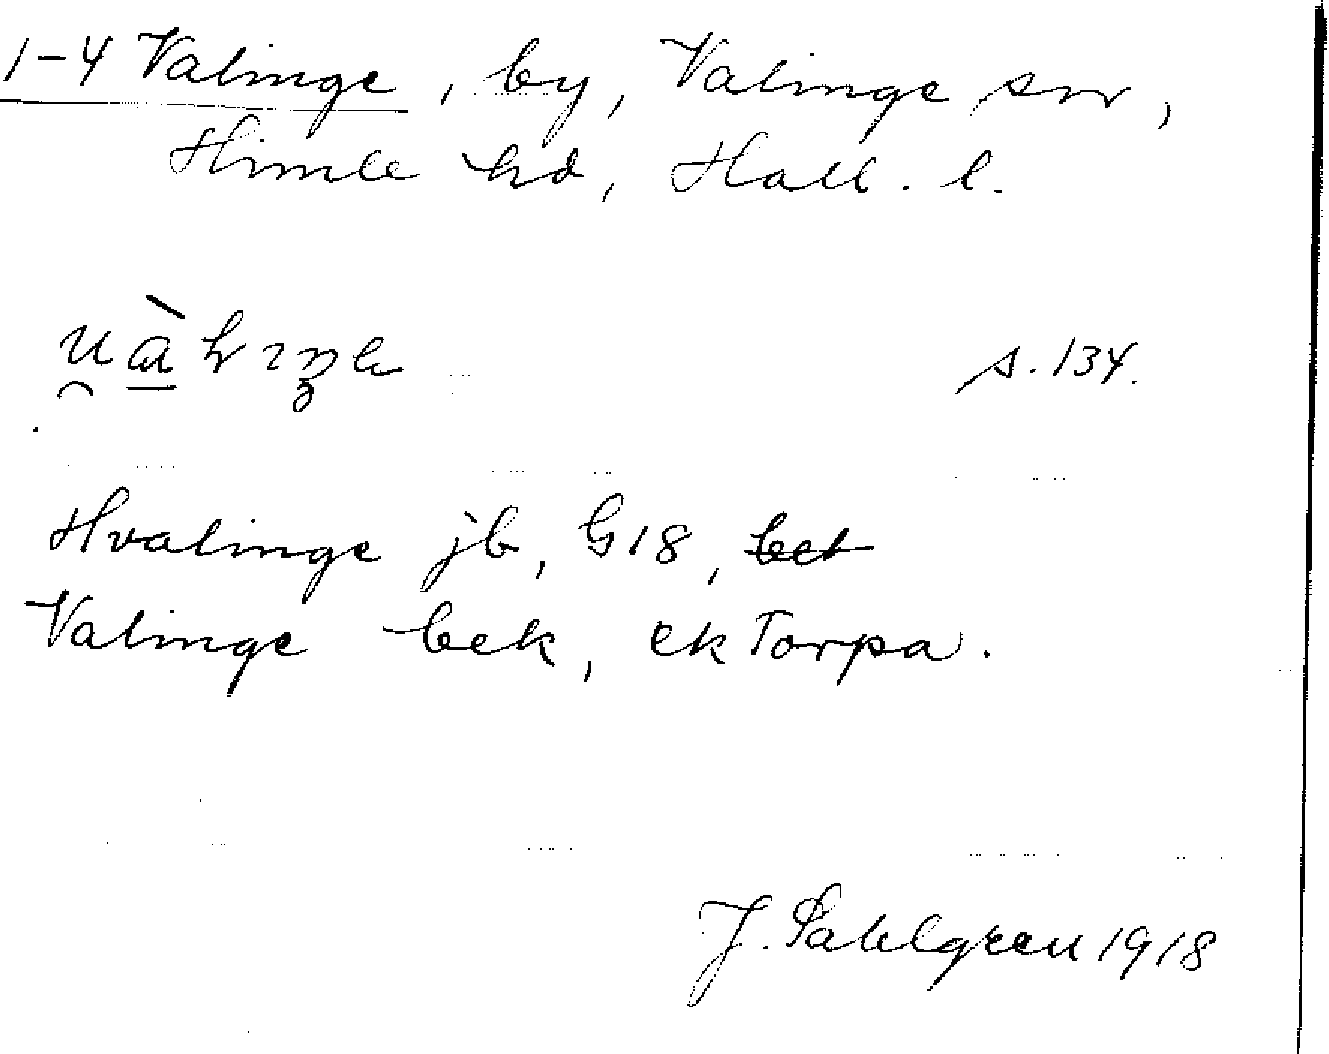 1-4 Valinge, by, Valinge sn,
Himle hd, Hall. l.
s. 134.
Hvalinge jb, G18, bet
Valinge bek, ek Torpa.
J. Sahlgren 1918